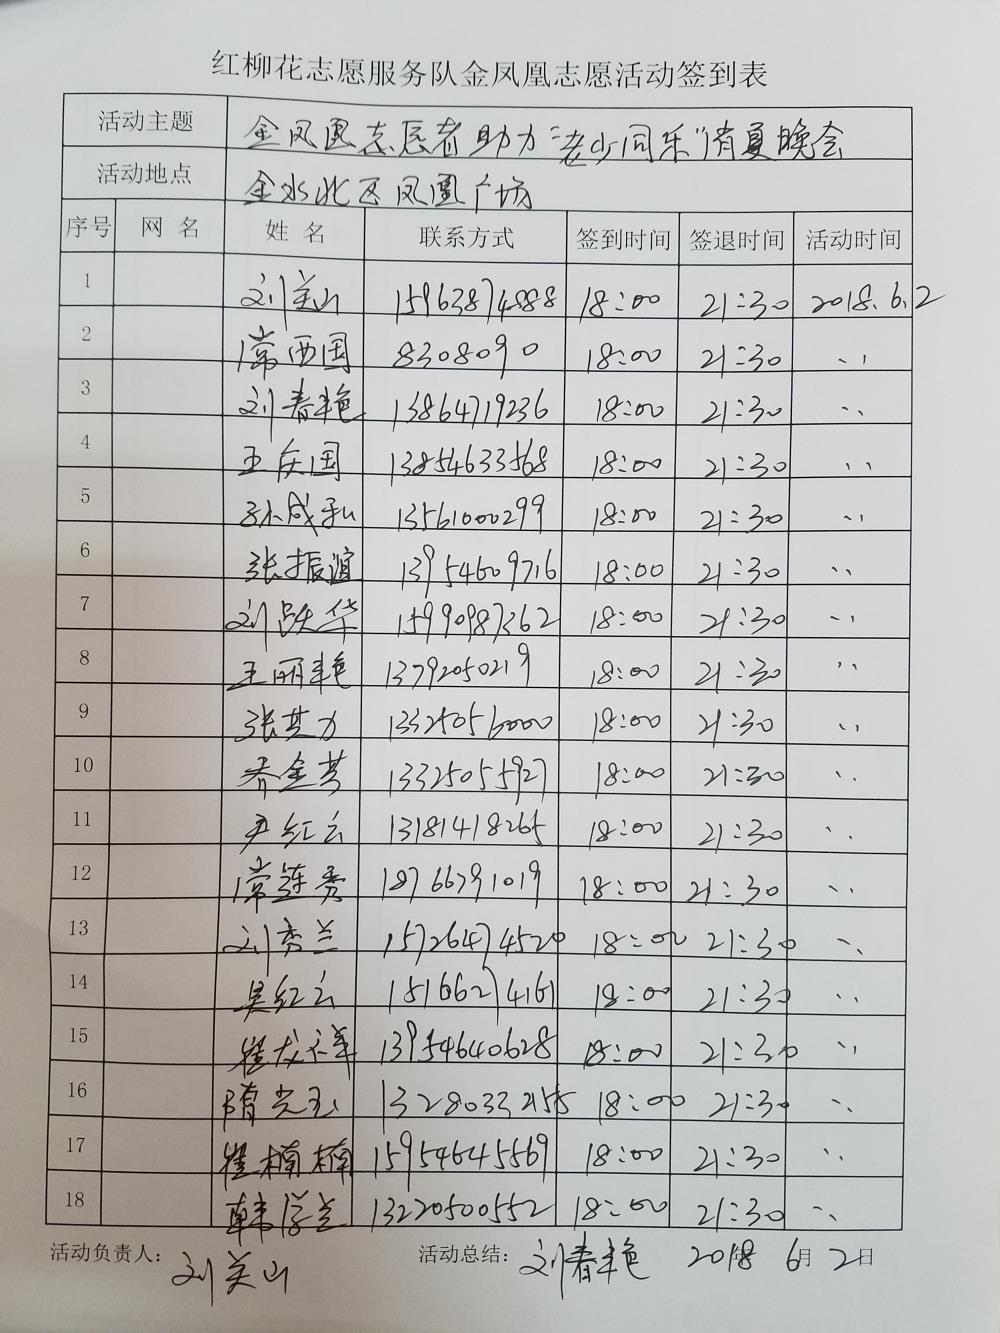 红柳花志愿服务队金凤凰志愿活动签到表
活动主题 金凤凰志愿者助力"老少同乐"消夏晚会
活动地点 金水北区凤凰广场
序号 网名 姓名 联系方式 签到时间 签退时间 活动时间
1 刘关山 15963874888 18:00 21:30 2018.6.2
2 常西国 8308090 18:00 21:30 、、
3 刘春艳 13864719236 18:00 21:30 、、
4 王庆国 13854633568 18:00 21:30 、、
5 孙成 13561000299 18:00 21:30 、、
6 张振谊 13954609716 18:00 21:30 、、
7 刘跃华 15990987362 18:00 21:30 、、
8 王丽艳 13792050219 18:00 21:30 、、
9 张其力 13325056000 18:00 21:30 、、
10 乔金芳 13325055927 18:00 21:30 、、
11 尹红云 13181418265 18:00 21:30 、、
12 常莲秀 18766791019 18:00 21:30 、、
13 刘秀兰 15726474520 18:00 21:30 、、
14 吴红云 15166274161 18:00 21:30 、、
15 崔龙祥 13954640628 18:00 21:30 、、
16 隋光玉 13280332155 18:00 21:30 、、
17 崔楠楠 15954645569 18:00 21:30 、、
18 韩学兰 13220500552 18:00 21:30 、、
活动负责人: 刘关山 活动总结: 刘春艳 2018年6月2日